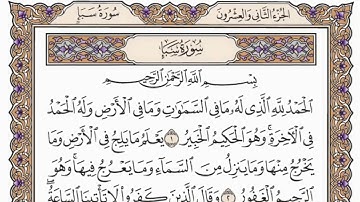 الجزء الثاني والعشرون
سورة سبإ
سُورَةُ سَبَإٍ
بِسْمِ اللَّهِ الرَّحْمَٰنِ الرَّحِيمِ
الْحَمْدُ لِلَّهِ الَّذِي لَهُ مَا فِي السَّمَٰوَٰتِ وَمَا فِي الْأَرْضِ وَلَهُ الْحَمْدُ
فِي الْآخِرَةِ وَهُوَ الْحَكِيمُ الْخَبِيرُ ١ يَعْلَمُ مَا يَلِجُ فِي الْأَرْضِ وَمَا
يَخْرُجُ مِنْهَا وَمَا يَنزِلُ مِنَ السَّمَاءِ وَمَا يَعْرُجُ فِيهَا وَهُوَ
الرَّحِيمُ الْغَفُورُ ٢ وَقَالَ الَّذِينَ كَفَرُوا لَا تَأْتِينَا السَّاعَةُ